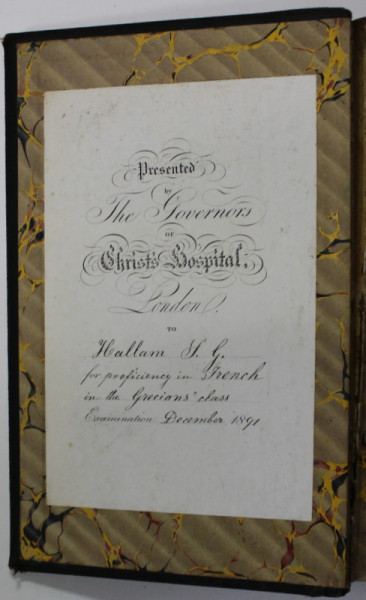 Presented
by
The Governors
OF
Christ's Hospital,
London.
TO
Hallam S. G.
for proficiency in French
in the Grecians' class
Examination December 1890